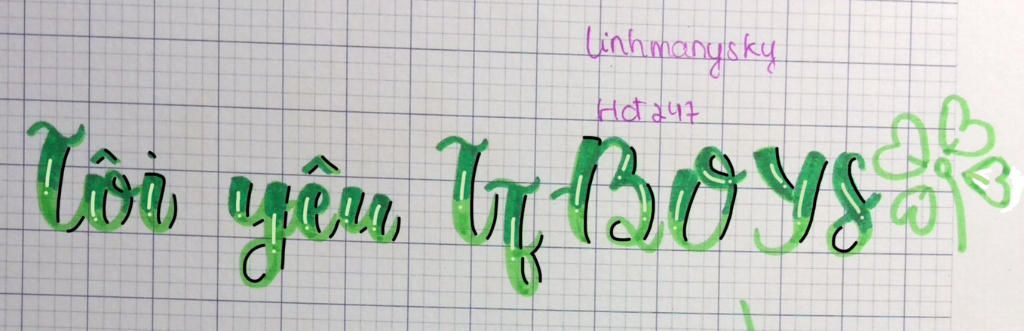 linhmanysky
Hot247
Tôi yêu TFBOYS